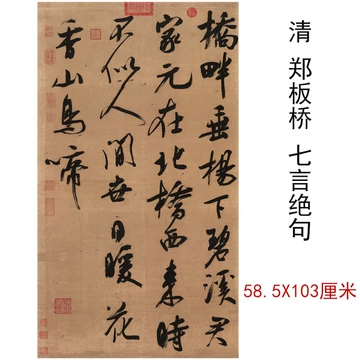 橋畔垂楊下碧溪君
家元在北橋西来時
不似人間世日暖花
香山鳥啼
清 郑板桥 七言绝句
58.5X103厘米